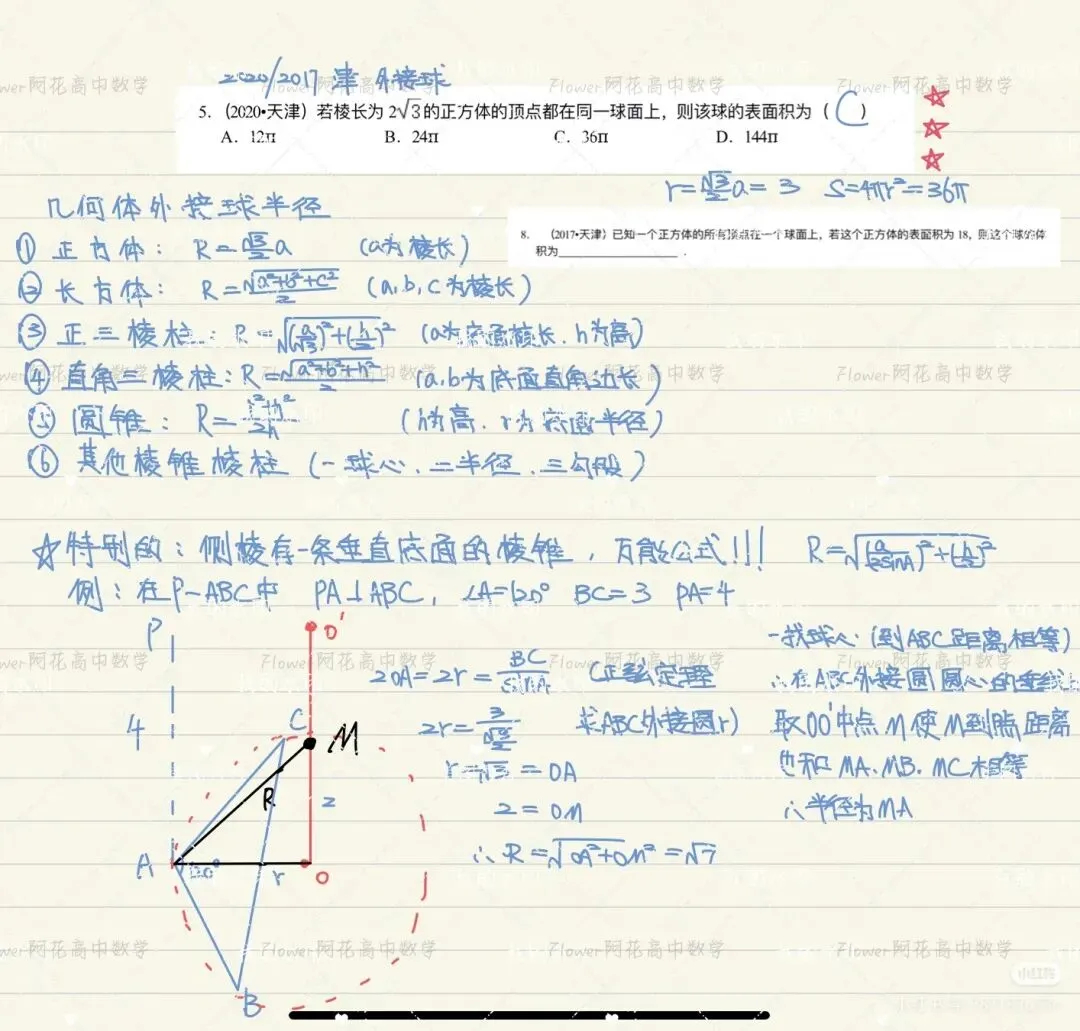 2020/2017 津 外接球
5.（2020•天津）若棱长为 2√3 的正方体的顶点都在同一球面上，则该球的表面积为（ C ）
A．12π B．24π C．36π D．144π
r=√3/2 a=3 S=4πr²=36π
几何体外接球半径
8. （2017•天津）已知一个正方体的所有顶点在一个球面上，若这个正方体的表面积为 18，则这个球的体
积为________________．
① 正方体： R=√3/2 a （a为棱长）
② 长方体： R=√(a²+b²+c²)/2 （a,b,c为棱长）
③ 正三棱柱：R=√((a/√3)²+(h/2)²) （a为底面棱长，h为高）
④ 直角三棱柱：R=√(a²+b²+h²)/2 （a,b为底面直角边长）
⑤ 圆锥： R=(r²+h²)/2h （h为高，r为底面半径）
⑥ 其他棱锥棱柱（一球心，二半径，三勾股）
☆特别的：侧棱存一条垂直底面的棱锥，万能公式!!! R=√((a/2sinA)²+(h/2)²)
例：在P-ABC中 PA⊥ABC，∠A=120° BC=3 PA=4
P
O'
一找球心（到ABC距离相等）
2OA=2r=BC/sinA （正弦定理
∴在ABC外接圆圆心的垂线
4
C
M
2r=3/(√3/2) 求ABC外接圆r）
取OO'中点M使M到P距离
r=√3=OA
也和MA、MB、MC相等
R
2
2=OM
∴半径为MA
∴R=√(OA²+OM²)=√7
A
120°
r
O
B
Flower阿花高中数学
小红书